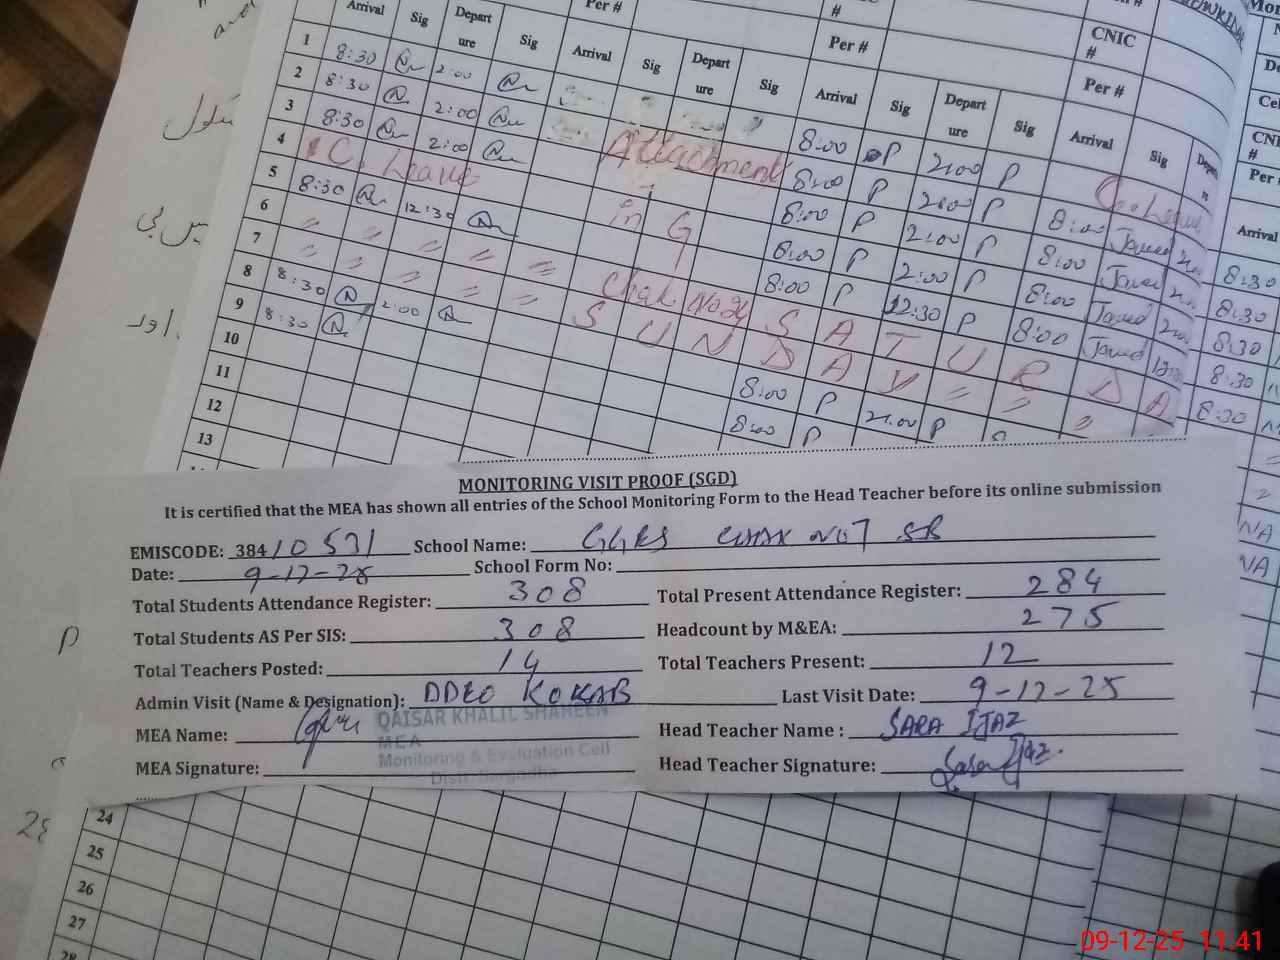 Arrival Sig Depart ure Sig Arrival Sig Depart ure Sig Arrival Sig Depart ure Sig Arrival Sig
Per # # Per # CNIC # Per #
1 8:30 2:00
2 8:30 2:00 Attachment 8:00 P 2:00 P
3 8:30 2:00 8:00 P 2:00 P C. Leave
4 C. Leave in G 8:00 P 2:00 P 8:00 Javed
5 8:30 12:30 8:00 P 2:00 P 8:00 Javed
6 = = = = Chak No 8:00 P 12:30 P 8:00 Javed
7 = = = = S A T U R D A
8 8:30 2:00 S U N D A Y = = =
9 8:30 8:00 P 2:00 P
10 8:00 P
11
12
13
Arrival
8:30
8:30
8:30
8:30
8:30
NA
NA
سکول
اور
MONITORING VISIT PROOF (SGD)
It is certified that the MEA has shown all entries of the School Monitoring Form to the Head Teacher before its online submission
EMISCODE: 38410531 School Name: GGES CHAK NO 7 SB
Date: 9-12-25 School Form No:
Total Students Attendance Register: 308 Total Present Attendance Register: 284
Total Students AS Per SIS: 308 Headcount by M&EA: 275
Total Teachers Posted: 14 Total Teachers Present: 12
Admin Visit (Name & Designation): DDEO KOKAB Last Visit Date: 9-12-25
MEA Name: QAISAR KHALIL SHAHEEN Head Teacher Name : SARA IJAZ
MEA
Monitoring & Evaluation Cell
Distt. Sargodha
MEA Signature: Head Teacher Signature: Sara Ijaz.
24
25
26
27
28
09-12-25 11.41